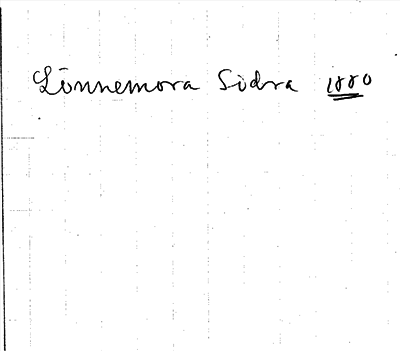 Lönnemora Södra 1880